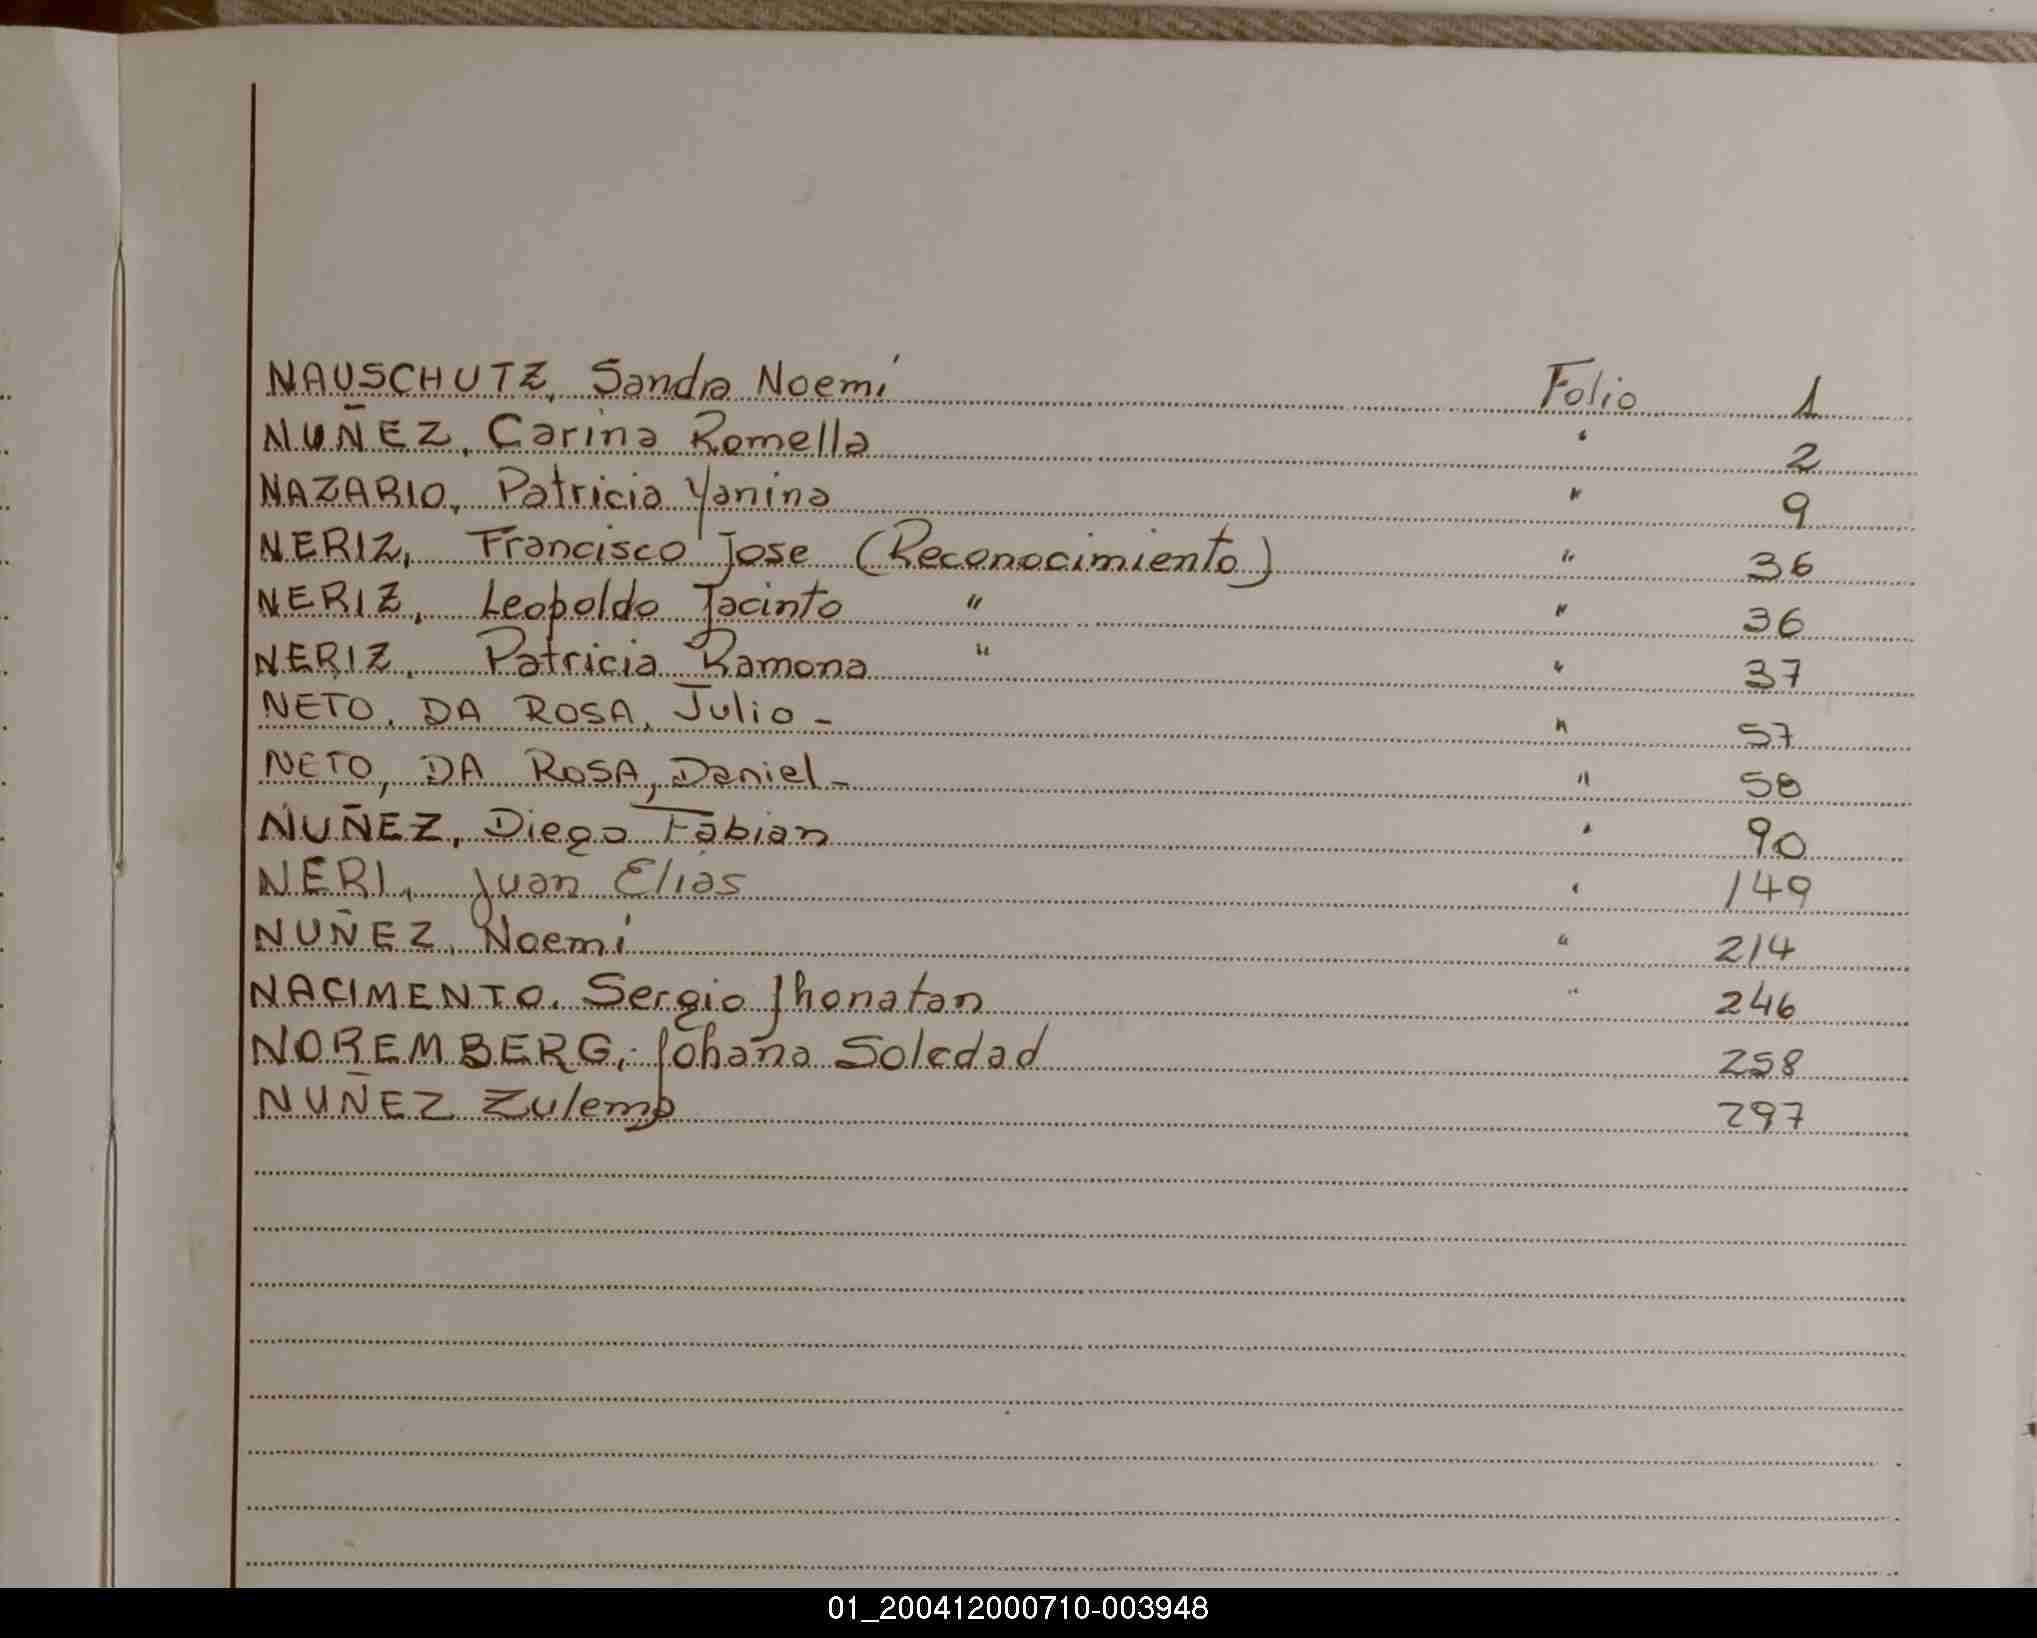 NAUSCHUTZ, Sandra Noemí Folio 1
NUÑEZ, Carina Romella " 2
NAZARIO, Patricia Yanina " 9
NERIZ, Francisco Jose (Reconocimiento) " 36
NERIZ, Leopoldo Jacinto " " 36
NERIZ, Patricia Ramona " " 37
NETO, DA ROSA, Julio - " 57
NETO, DA ROSA, Daniel - " 58
NUÑEZ, Diego Fabian " 90
NERI, Juan Elias " 149
NUÑEZ, Noemí " 214
NACIMENTO, Sergio Jhonatan " 246
NOREMBERG, Johana Soledad 258
NUÑEZ Zulema 297
01_200412000710-003948